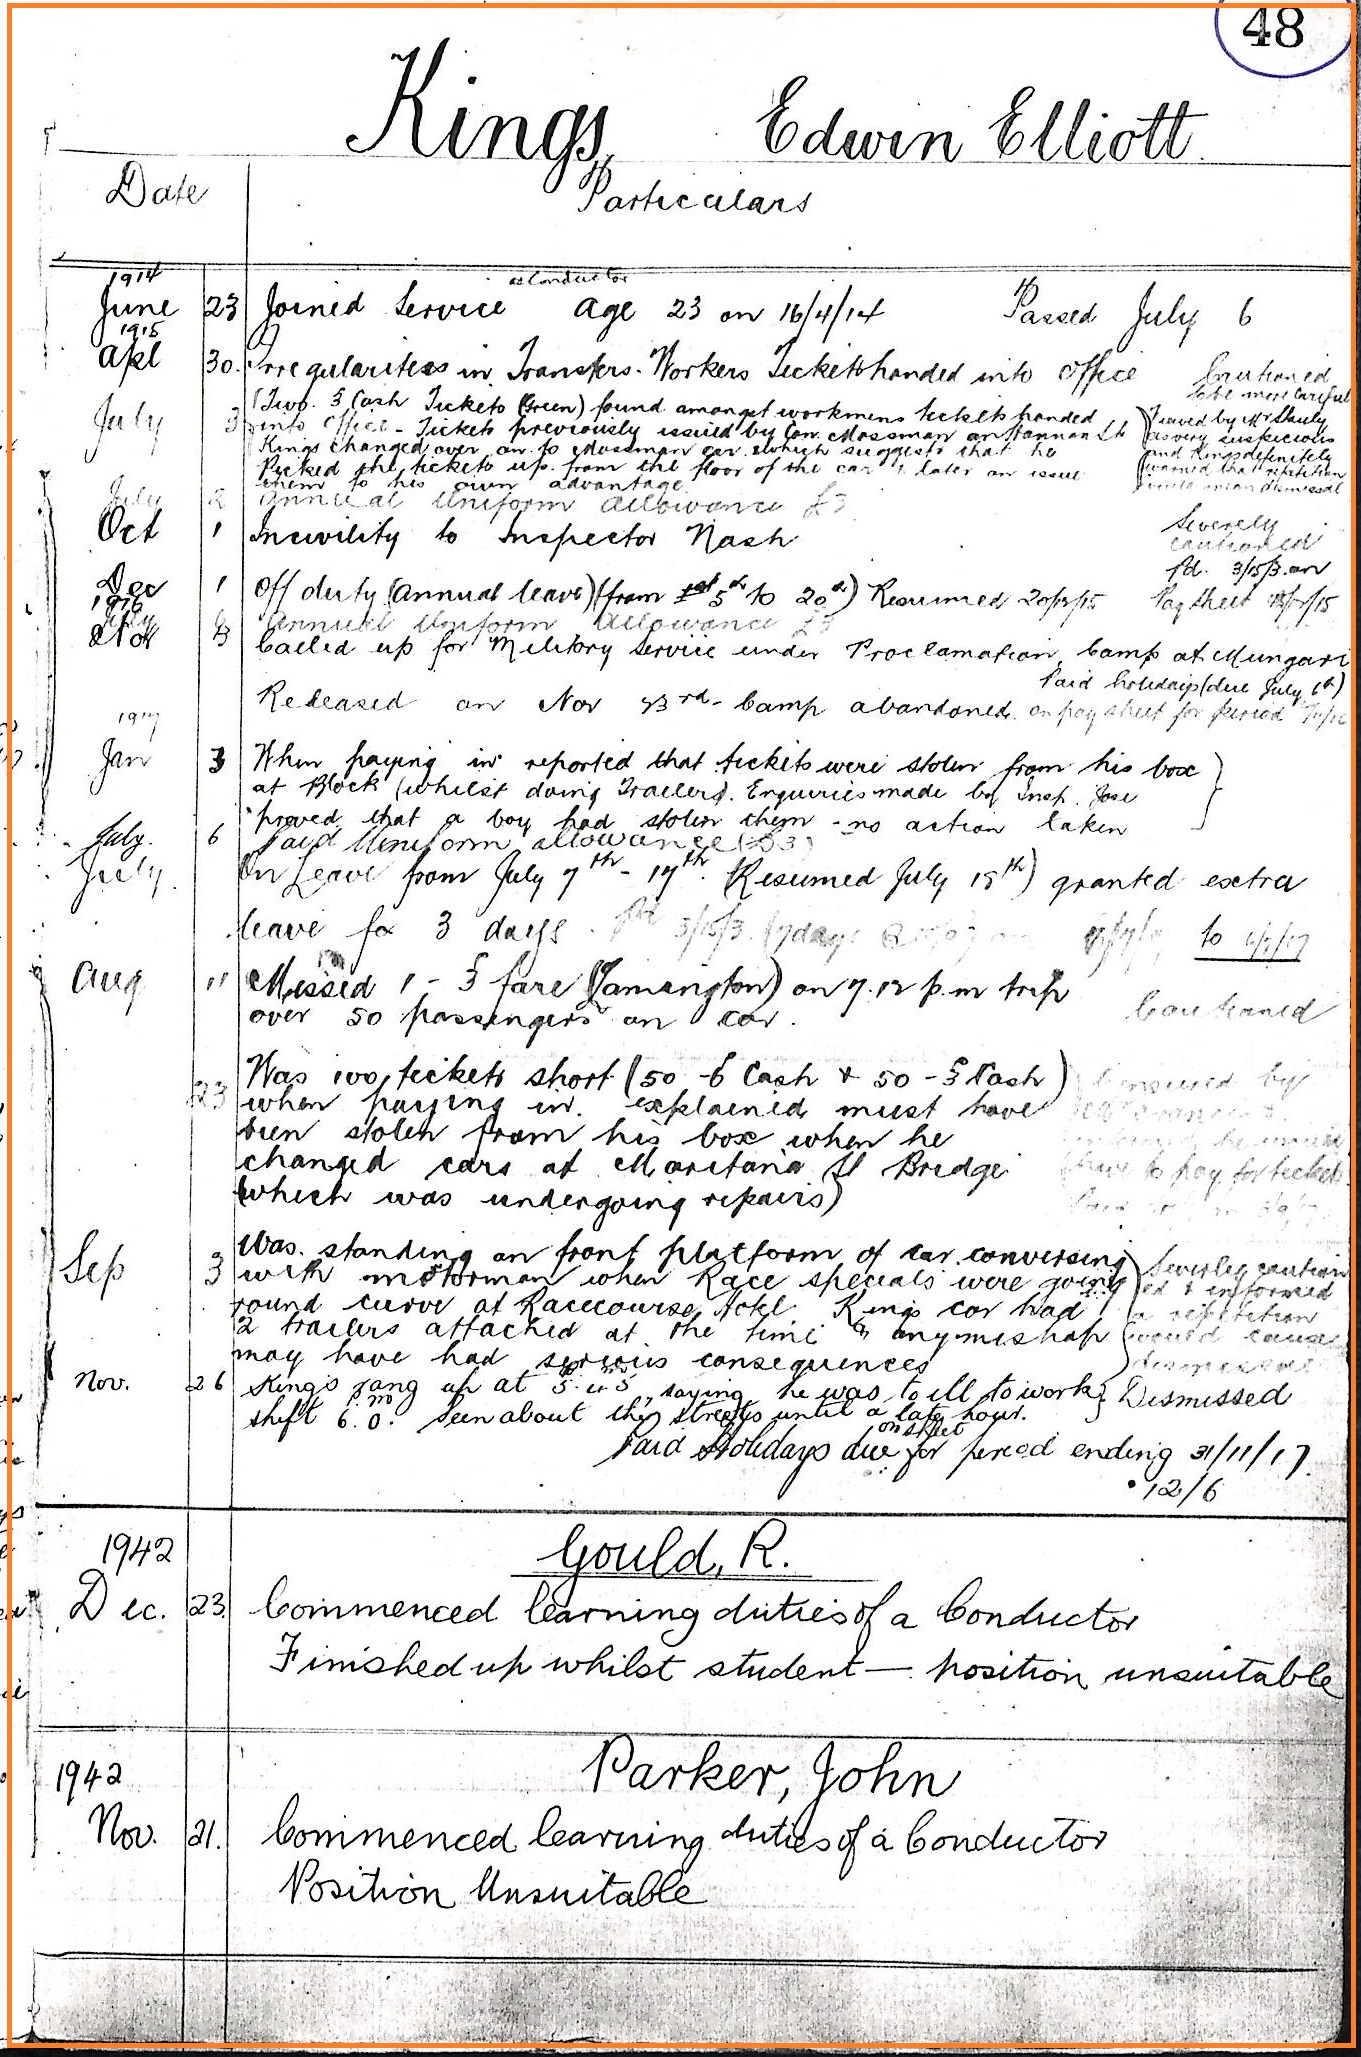 48
Kings, Edwin Elliott
Date Particulars
1914 as Conductor
June 23 Joined Service Age 23 on 16/4/14 Passed July 6
1915
Apl 30. Irregularities in Transfers. Workers Tickets handed into Office Cautioned
to be more careful
July 3 (Two. 3 Cash Tickets (Green) found amongst workmens tickets handed
into Office - Tickets previously issued by Con. Mossman on Hannan St
Kings changed over on to Mossman car which suggests that he
Picked the tickets up from the floor of the car & later on issue
them to his own advantage.
as very suspicious
and Kings definitely
warned that repetition
would mean dismissal
July 2 Annual Uniform Allowance £3
Oct 1 Incivility to Inspector Nash
Severely
cautioned
Pd. 3/15/3. on
Dec 1 Off duty (Annual leave) (from 1st 5th to 20th) Resumed 20/12/15 Pay Sheet /15
1916
July 6 Annual Uniform Allowance £3
Nov 3 Called up for Military Service under Proclamation, Camp at Mungari
Paid holidays (due July 6th)
Released on Nov 23rd - Camp abandoned. on pay sheet for period
1917
Jan 3 When paying in reported that tickets were stolen from his box
at Block (whilst doing Trailers). Enquiries made by Insp. Jose
proved that a boy had stolen them - no action taken
July. 6 Paid Uniform allowance (£3)
July. On Leave from July 7th - 17th. (Resumed July 18th) granted extra
leave for 3 days. Pd 3/15/3. (7 days to 6/7/17
Aug 11 Missed 1 - 3 fare (Lamington) on 7.12 p.m trip
over 50 passengers on car.
Cautioned
23 Was 100 tickets short (50 - 6 Cash & 50 - 3 Cash)
when paying in. explained must have
been stolen from his box when he
changed cars at Maritana St Bridge
(which was undergoing repairs)
Censured by
have to pay for tickets.
Sep 3 Was standing on front platform of car conversing
with motorman when Race specials were going
round curve at Racecourse Hotel Kings car had
2 trailers attached at the time & any mishap
may have had serious consequences
Severley caution
ed & informed
a repetition
would cause
dismissal
Nov. 26 Kings rang up at 5.45 pm, saying he was to ill to work
shift 6.0. pm Seen about the streets until a late hour.
Dismissed
on sheet
Paid Holidays due for period ending 31/11/17.
12/6
1942 Gould, R.
Dec. 23. Commenced learning duties of a Conductor
Finished up whilst student — position unsuitable
1942 Parker, John
Nov. 21. Commenced learning duties of a Conductor
Position Unsuitable